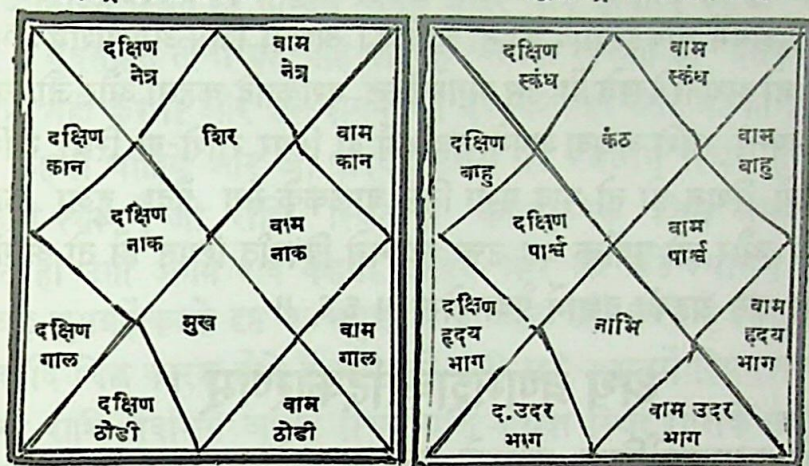 दक्षिण
नेत्र
वाम
नेत्र
दक्षिण
कान
शिर
वाम
कान
दक्षिण
नाक
वाम
नाक
दक्षिण
गाल
मुख
वाम
गाल
दक्षिण
ठोडी
वाम
ठोडी
दक्षिण
स्कंध
वाम
स्कंध
दक्षिण
बाहु
कंठ
वाम
बाहु
दक्षिण
पार्श्व
वाम
पार्श्व
दक्षिण
हृदय
भाग
नाभि
वाम
हृदय
भाग
द.उदर
भाग
वाम उदर
भाग